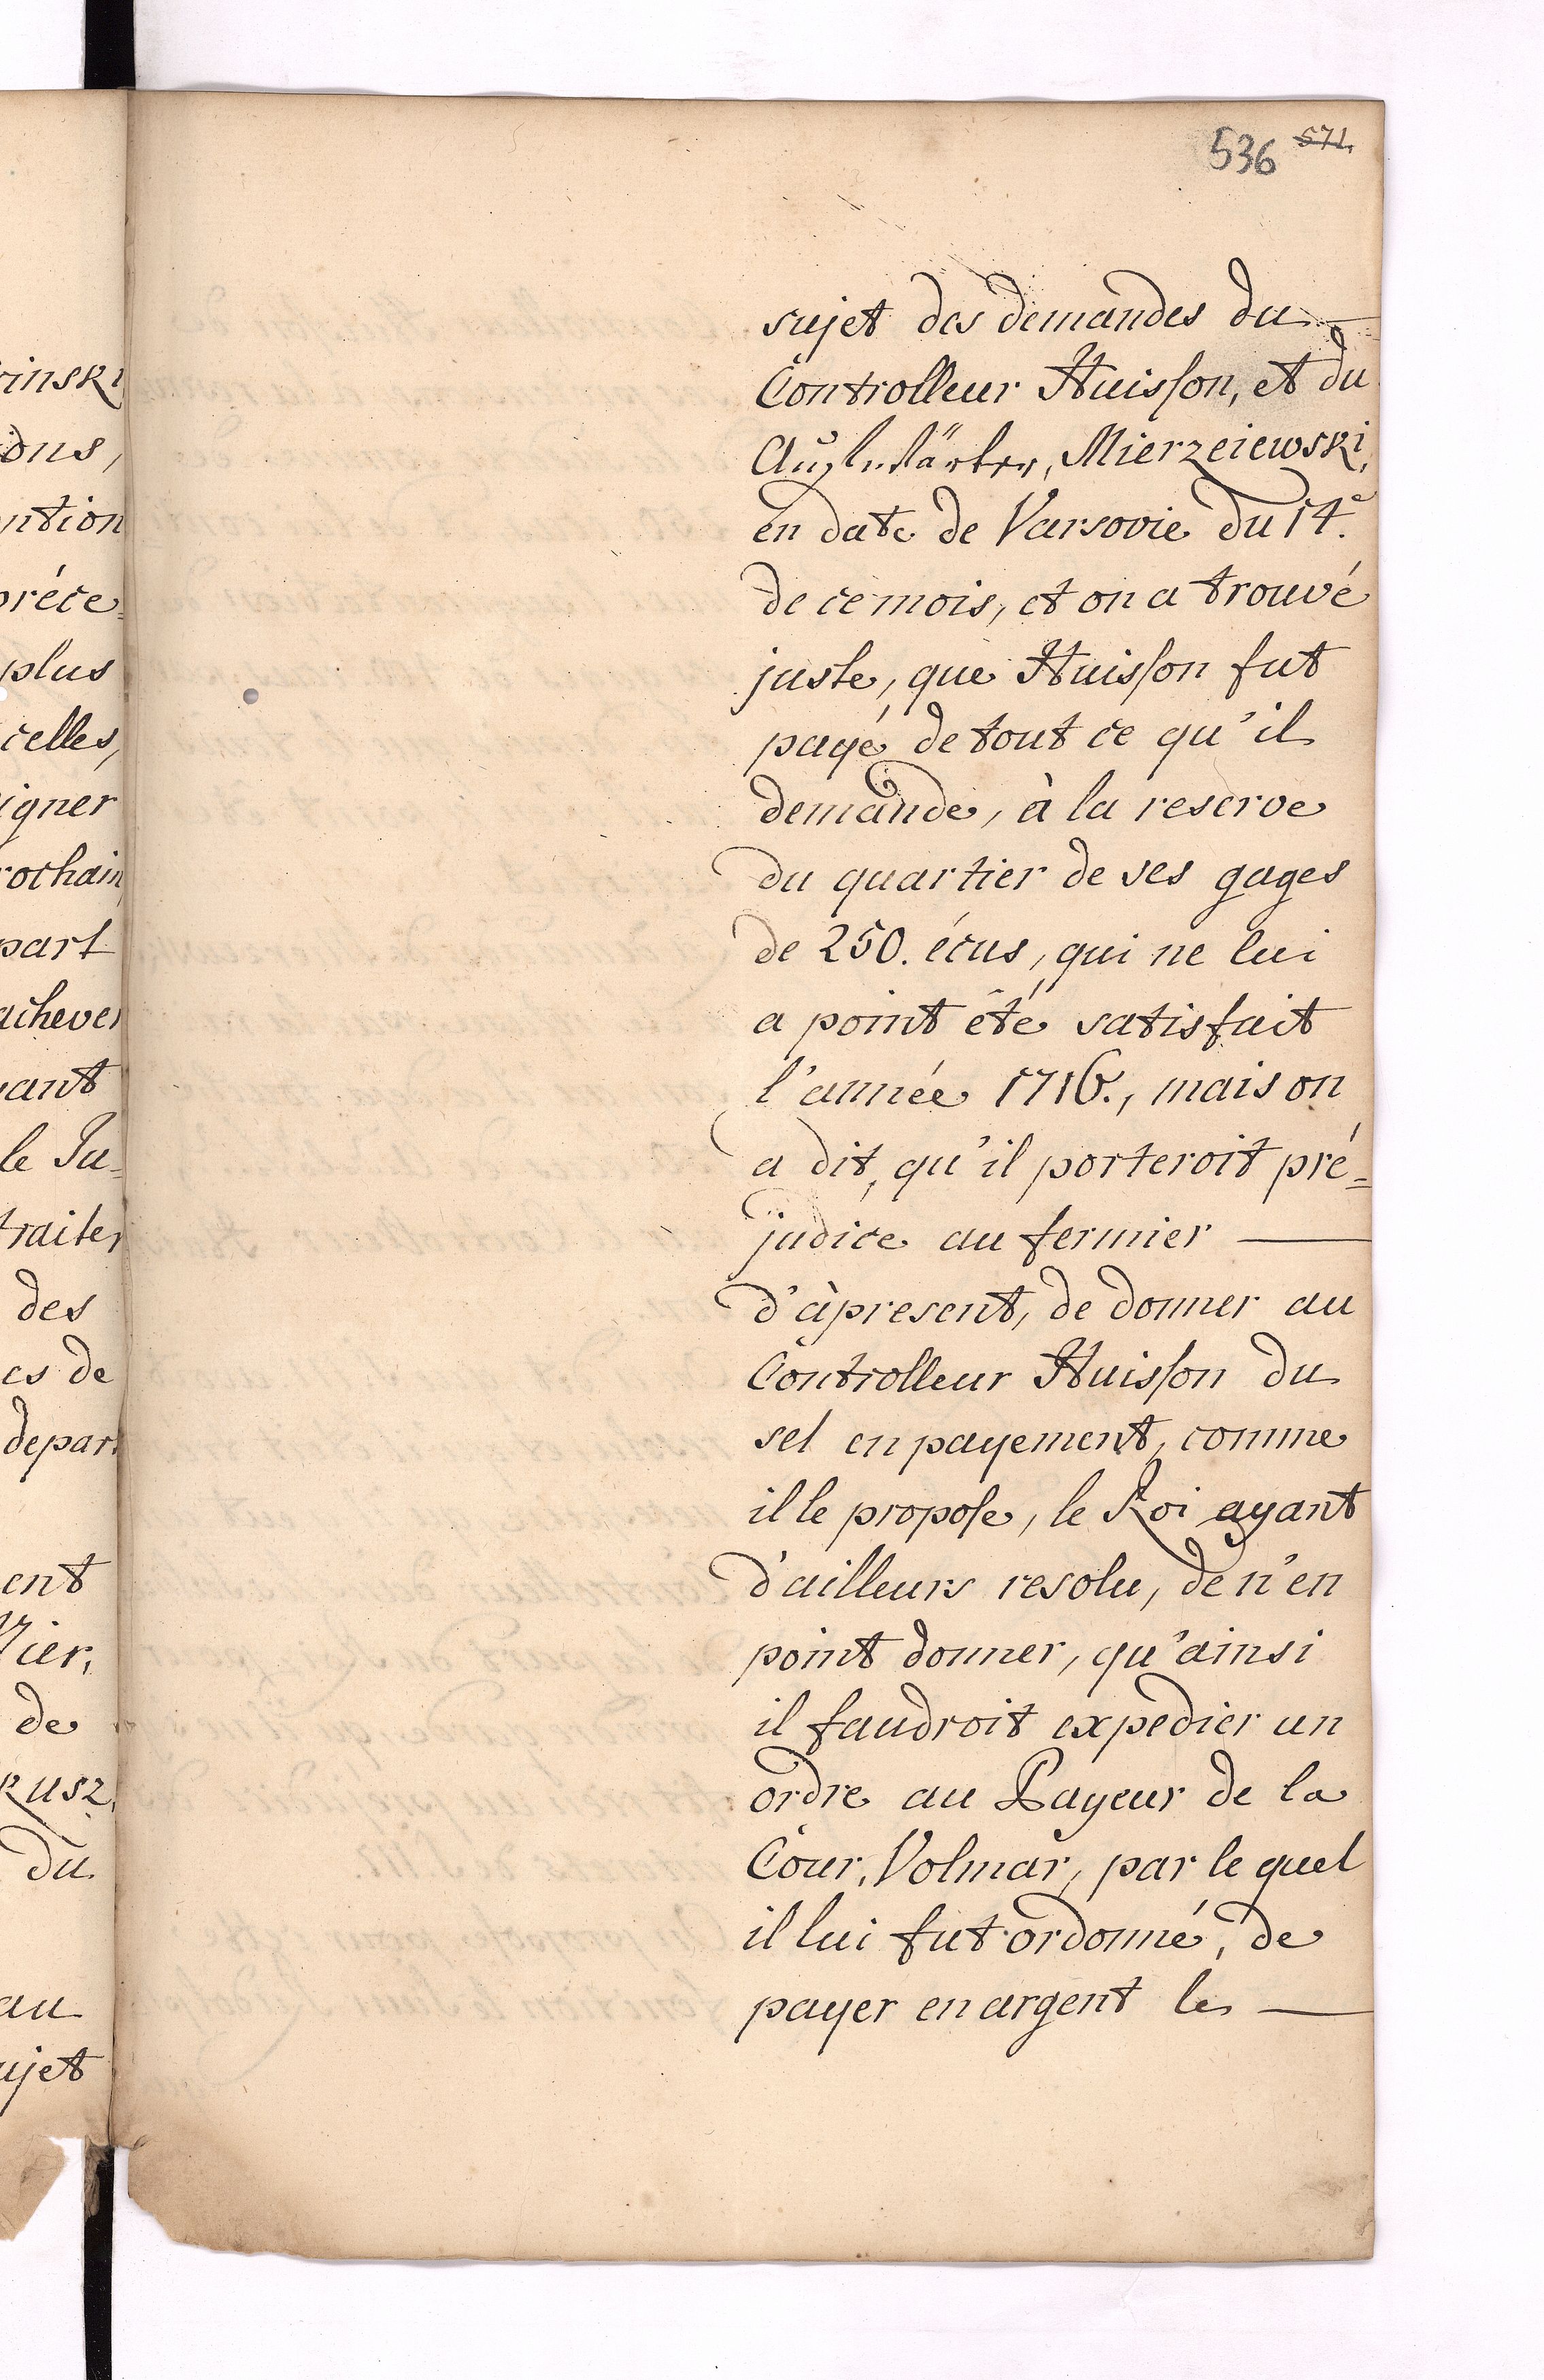 536 571.
sujet des demandes du
Controlleur Huisson, et du
Mierzeiewski,
en date de Varsovie du 14.e
de ce mois, et on a trouvé
juste, que Huisson fut
payé de tout ce qu'il
demande, à la reserve
du quartier de ses gages
de 250. écus, qui ne lui
a point été satisfait
l'année 1716., mais on
a dit, qu'il porteroit pré=
judice au fermier
d'àpresent, de donner au
Controlleur Huisson du
sel en payement, comme
il le propose, le Roi ayant
d'ailleurs resolu, de n'en
point donner, qu'ainsi
il faudroit expedier un
ordre au Payeur de la
Cour, Volmar, par le quel
il lui fut ordonné, de
payer en argent les